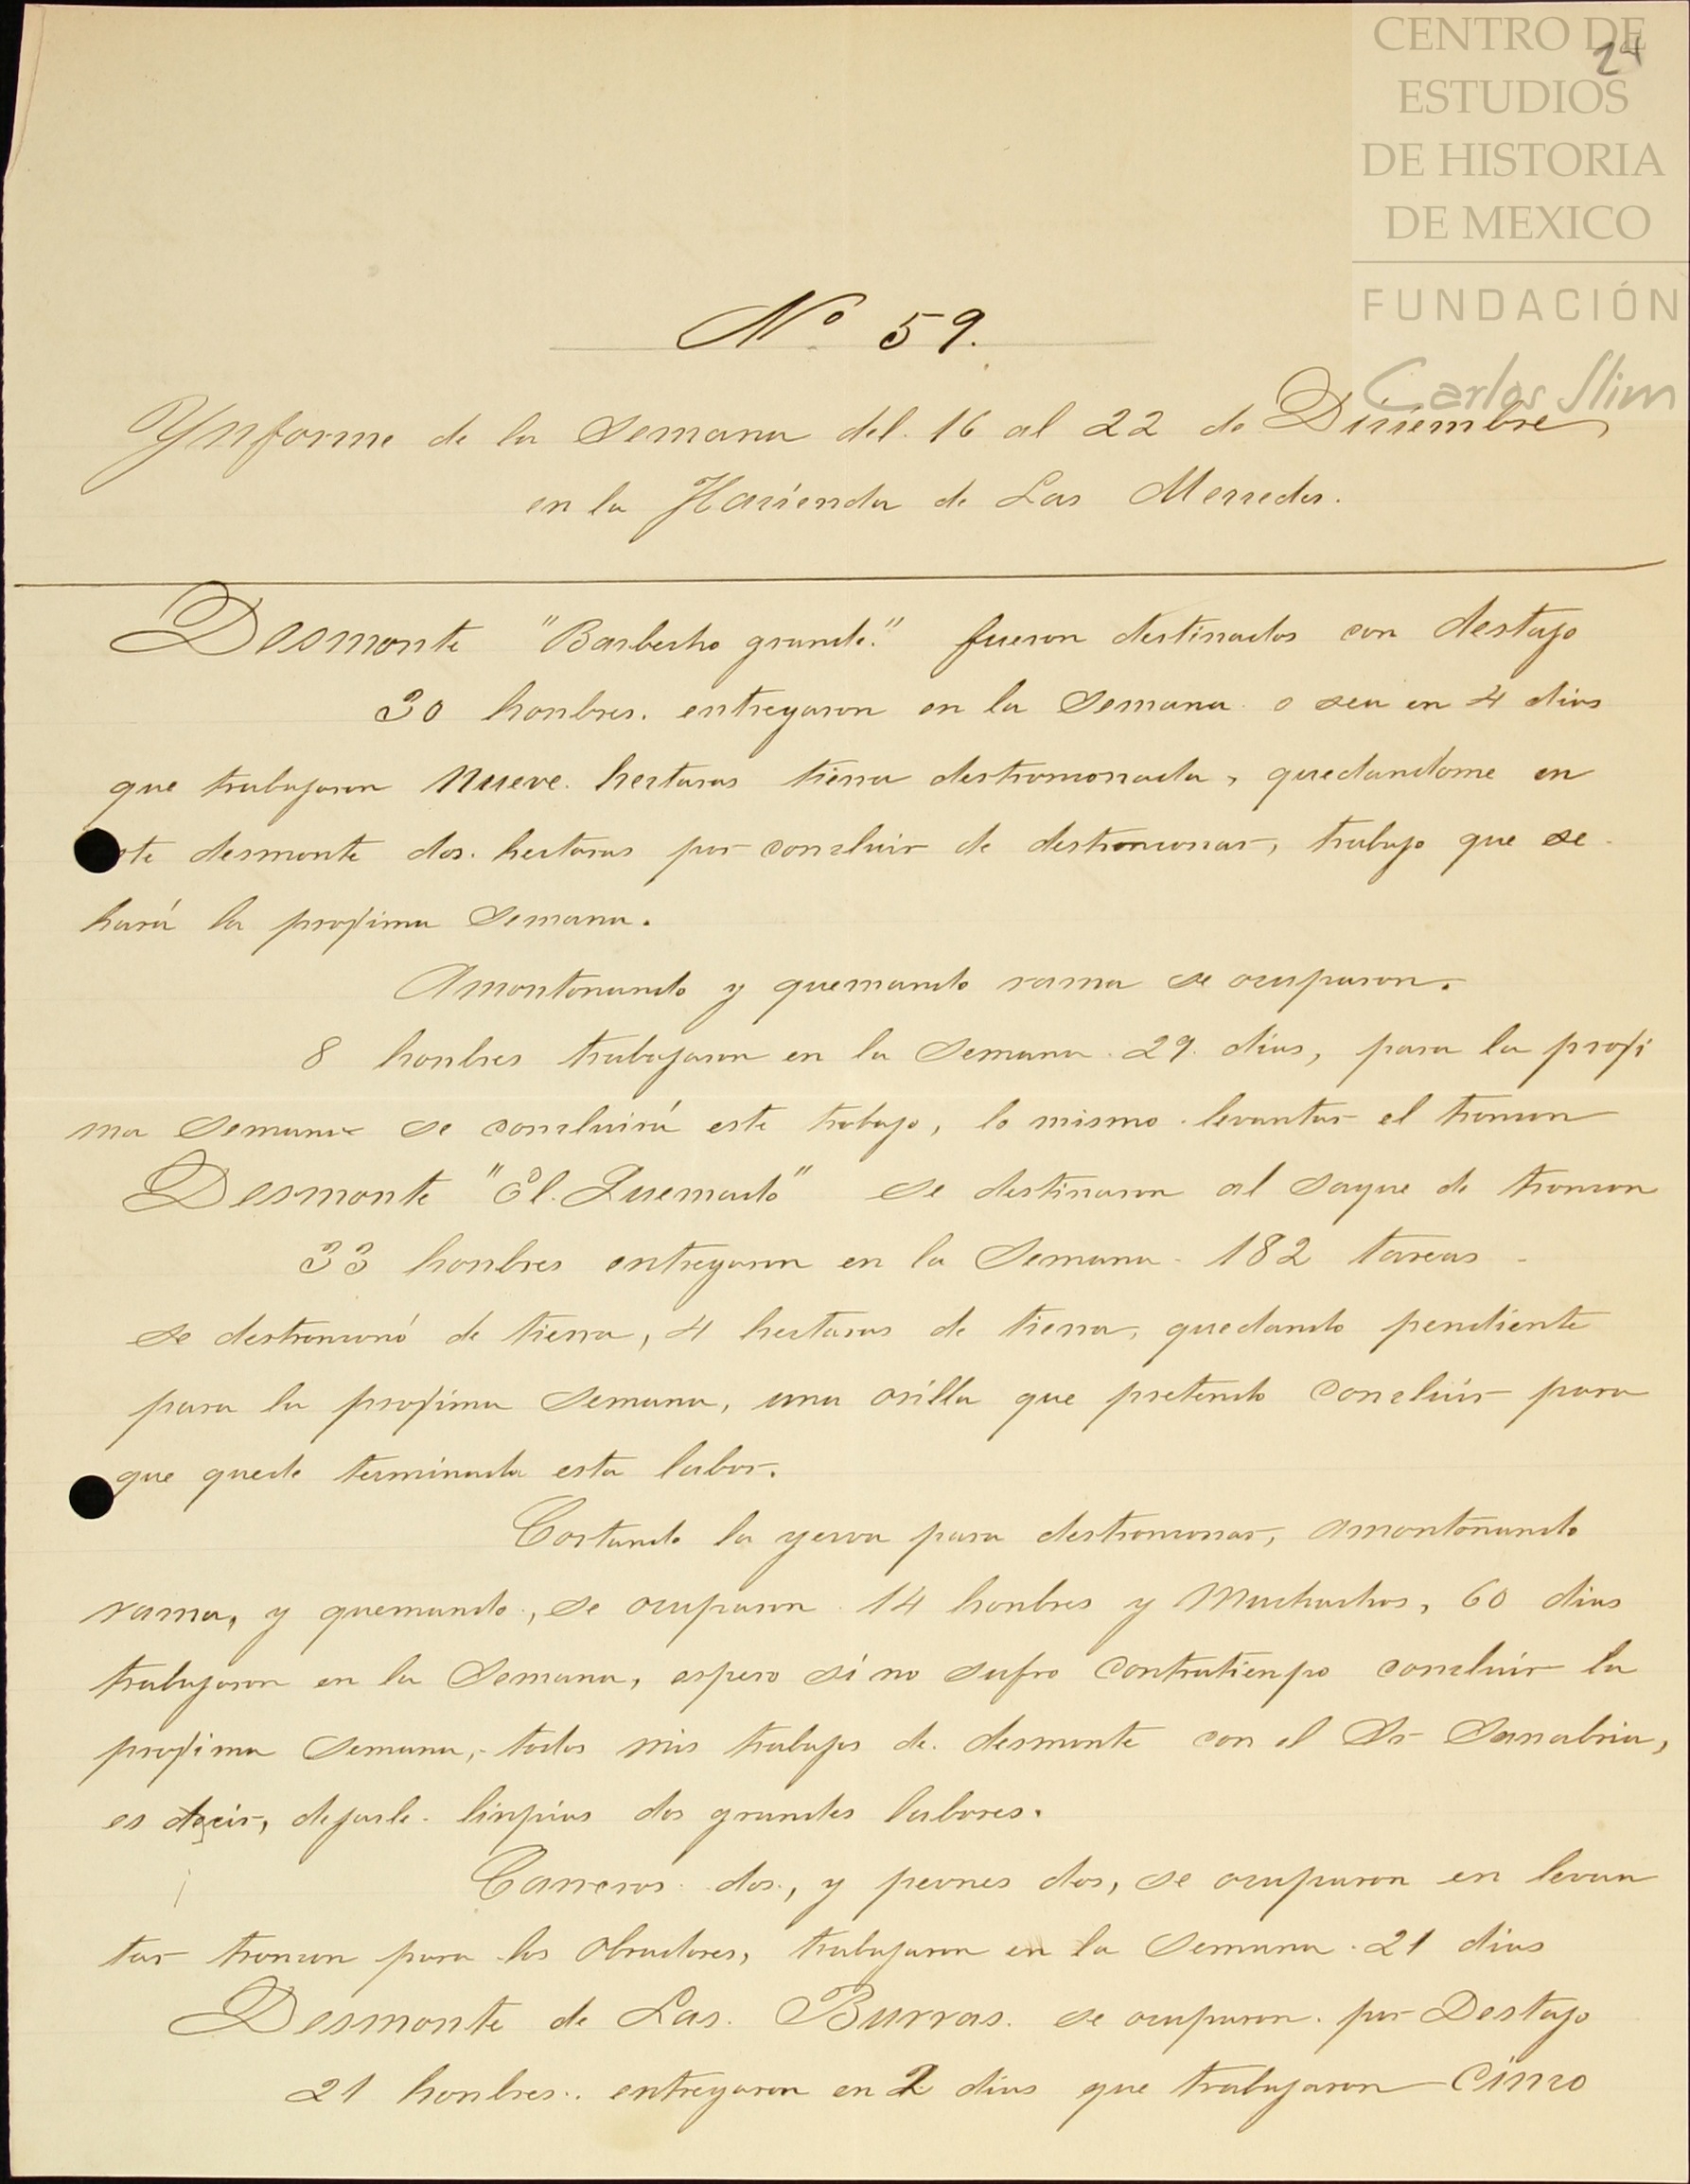 CENTRO DE
ESTUDIOS
DE HISTORIA
DE MEXICO
FUNDACIÓN
Carlos Slim
24
Nº 59.
Ynforme de la Semana del 16 al 22 de Diciembre
en la Hacienda de Las Mercedes.
Desmonte "Barbecho grande." fueron destinados con destajo
30 honbres. entregaron en la Semana o sea en 4 dias
que trabajaron Nueve. hectaras tierra destronconada, quedandome en
ste desmonte dos. hectaras por concluir de destronconar, trabajo que se
hará la profima Semana.
Amontonando y quemando rama se ocuparon.
8 honbres trabajaron en la Semana. 29. dias, para la profi
ma Semana se concluirá este trabajo, lo mismo levantar el troncon
Desmonte "El. Quemado" se destinaron al saque de troncon
33 honbres entregaron en la Semana - 182 tareas -
se destronconó de tierra, 4 hectaras de tierra, quedando pendiente
para la profima Semana, una orilla que pretendo concluir para
que quede terminada esta labor.
Cortando la yerva para destronconar, amontonando
rama, y quemando, se ocuparon 14 honbres y Muchachos, 60 dias
trabajaron en la Semana, espero si no sufro contratienpo concluir la
profima Semana, todos mis trabajos de. desmonte con el Sr Sanabria,
es decir, dejarle. linpias dos grandes labores.
Carreros dos, y peones dos, se ocuparon en levan
tar troncon para los obradores, trabajaron en la Semana. 21 dias
Desmonte de Las. Burras. se ocuparon. por Destajo
21 honbres. entregaron en 2 dias que trabajaron Cinco